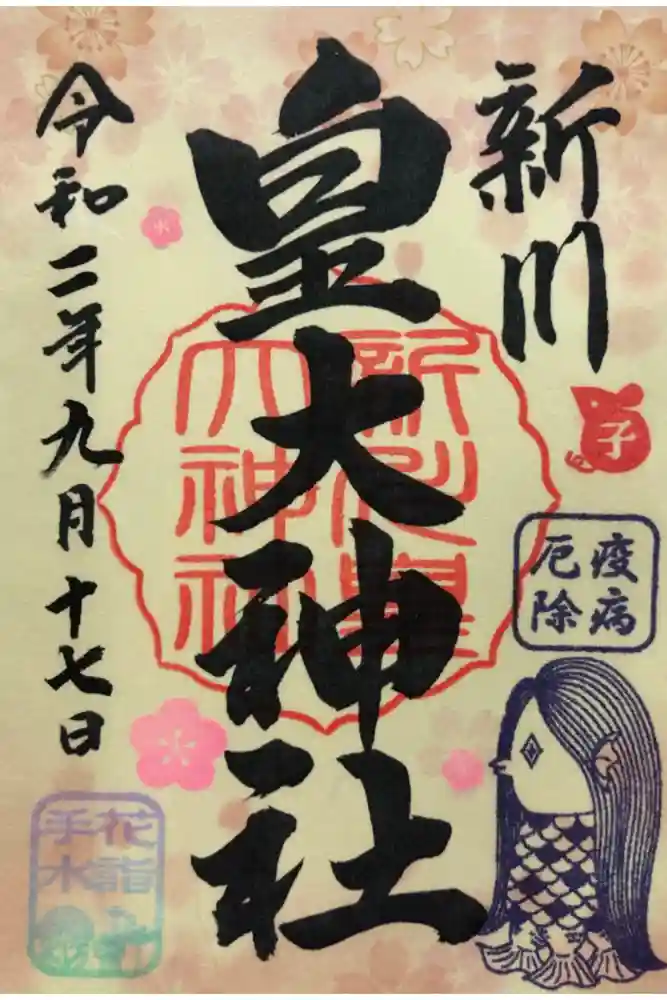 新川
皇大神社
令和二年九月十七日
新川皇
大神社
子
疫病
厄除
花詣
手水